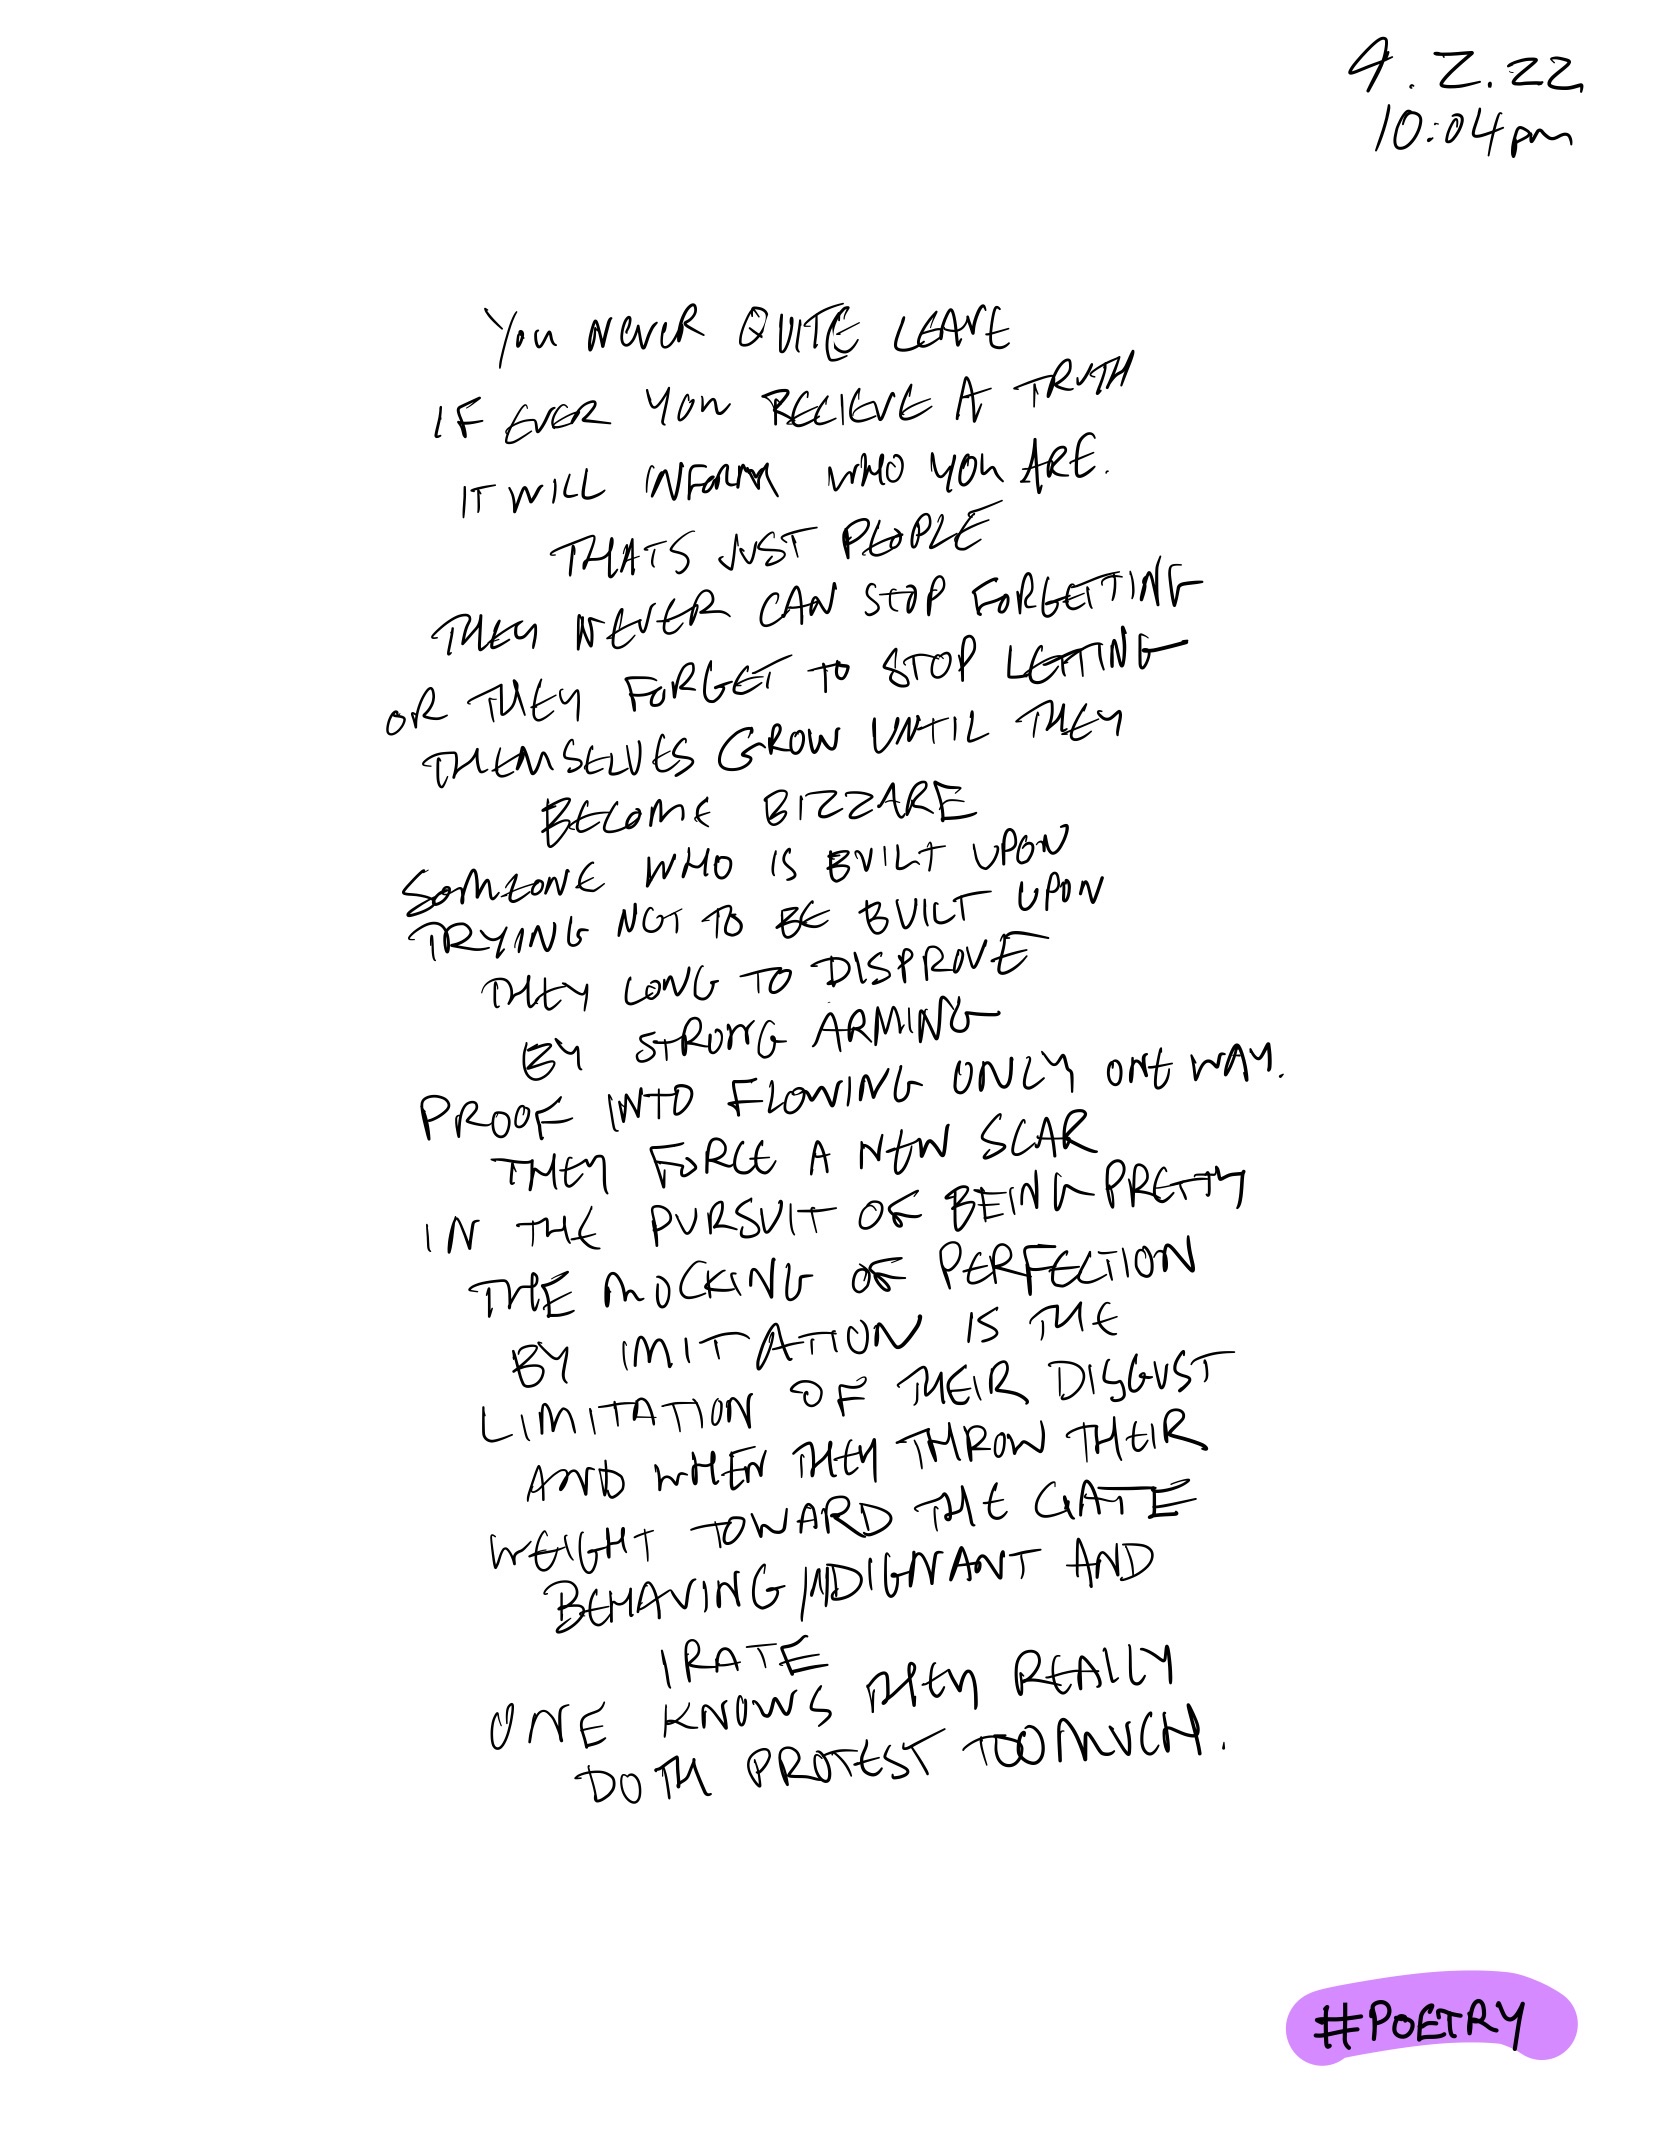 4.2.22
10:04pm
You NEVER QUITE LEAVE
IF EVER YOU RECIEVE A TRUTH
IT WILL INFORM WHO YOU ARE.
THATS JUST PEOPLE
THEY NEVER CAN STOP FORGETTING
OR THEY FORGET TO STOP LETTING
THEMSELVES GROW UNTIL THEY
BECOME BIZZARE
SOMEONE WHO IS BUILT UPON
TRYING NOT TO BE BUILT UPON
THEY LONG TO DISPROVE
BY STRONG ARMING
PROOF INTO FLOWING ONLY ONE WAY.
THEY FORCE A NEW SCAR
IN THE PURSUIT OF BEING PRETTY
THE MOCKING OF PERFECTION
BY IMITATION IS THE
LIMITATION OF THEIR DISGUST
AND WHEN THEY THROW THEIR
WEIGHT TOWARD THE GATE
BEHAVING INDIGNANT AND
IRATE
ONE KNOWS THEY REALLY
DOTH PROTEST TOO MUCH.
#POETRY